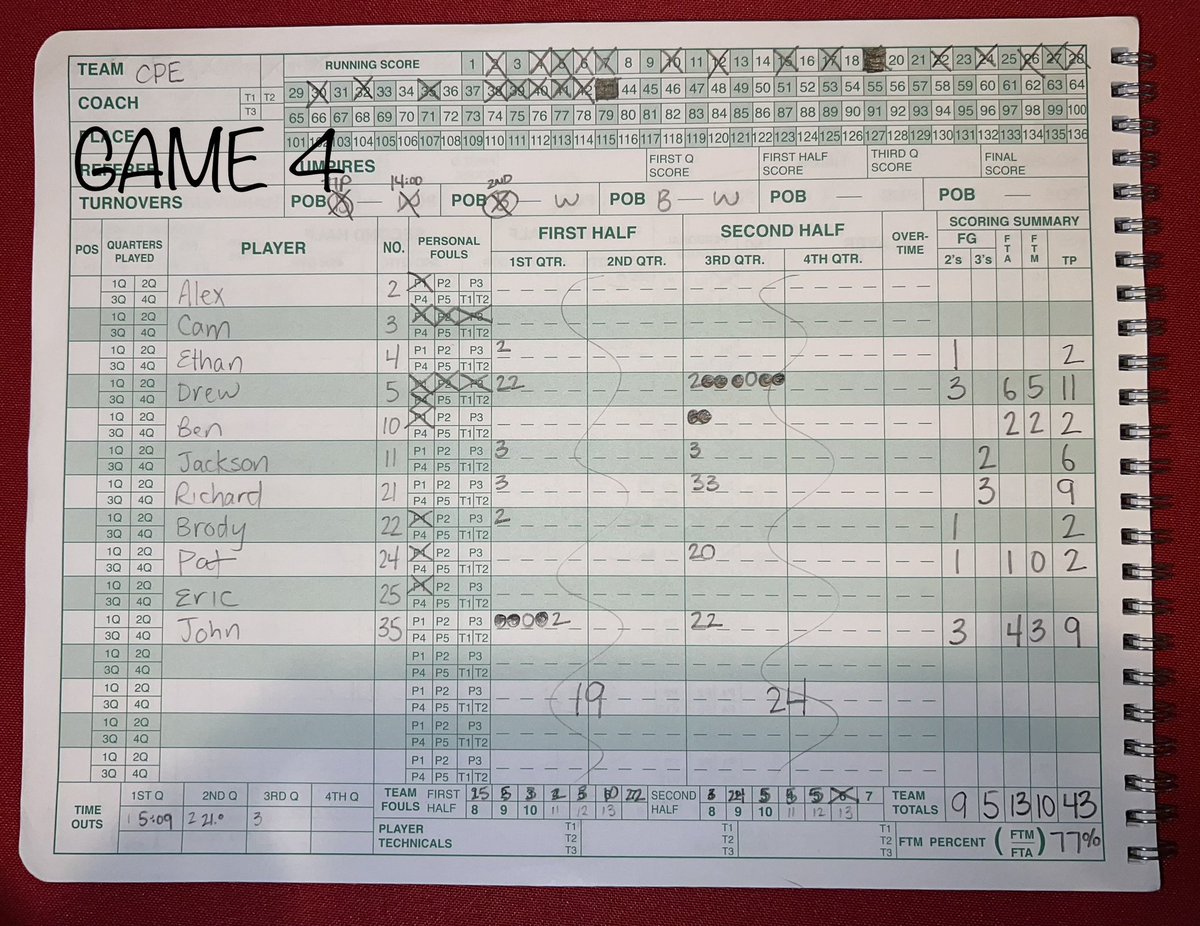 TEAM CPE RUNNING SCORE 1 2 3 4 5 6 7 8 9 10 11 12 13 14 15 16 17 18 20 21 22 23 24 25 26 27 28
COACH T1 T2 T3 29 30 31 32 33 34 35 36 37 38 39 40 41 42 44 45 46 47 48 49 50 51 52 53 54 55 56 57 58 59 60 61 62 63 64
65 66 67 68 69 70 71 72 73 74 75 76 77 78 79 80 81 82 83 84 85 86 87 88 89 90 91 92 93 94 95 96 97 98 99 100
PLACE 101 102 103 104 105 106 107 108 109 110 111 112 113 114 115 116 117 118 119 120 121 122 123 124 125 126 127 128 129 130 131 132 133 134 135 136
GAME 4
REFEREE UMPIRES FIRST Q SCORE FIRST HALF SCORE THIRD Q SCORE FINAL SCORE
TIP 14:00 2ND
TURNOVERS POB B — W POB B — W POB B — W POB — POB —
POS QUARTERS PLAYED PLAYER NO. PERSONAL FOULS FIRST HALF SECOND HALF OVER-TIME SCORING SUMMARY
1ST QTR. 2ND QTR. 3RD QTR. 4TH QTR. FG 2's 3's FTA FTM TP
1Q 2Q 3Q 4Q Alex 2 P1 P2 P3 P4 P5 T1 T2
1Q 2Q 3Q 4Q Cam 3 P1 P2 P3 P4 P5 T1 T2
1Q 2Q 3Q 4Q Ethan 4 P1 P2 P3 P4 P5 T1 T2 2 1 2
1Q 2Q 3Q 4Q Drew 5 P1 P2 P3 P4 P5 T1 T2 22 2 3 6 5 11
1Q 2Q 3Q 4Q Ben 10 P1 P2 P3 P4 P5 T1 T2 2 2 2
1Q 2Q 3Q 4Q Jackson 11 P1 P2 P3 P4 P5 T1 T2 3 3 2 6
1Q 2Q 3Q 4Q Richard 21 P1 P2 P3 P4 P5 T1 T2 3 33 3 9
1Q 2Q 3Q 4Q Brody 22 P1 P2 P3 P4 P5 T1 T2 2 1 2
1Q 2Q 3Q 4Q Pat 24 P1 P2 P3 P4 P5 T1 T2 20 1 1 0 2
1Q 2Q 3Q 4Q Eric 25 P1 P2 P3 P4 P5 T1 T2
1Q 2Q 3Q 4Q John 35 P1 P2 P3 P4 P5 T1 T2 2 22 3 4 3 9
1Q 2Q 3Q 4Q P1 P2 P3 P4 P5 T1 T2
1Q 2Q 3Q 4Q P1 P2 P3 P4 P5 T1 T2 19 24
1Q 2Q 3Q 4Q P1 P2 P3 P4 P5 T1 T2
1Q 2Q 3Q 4Q P1 P2 P3 P4 P5 T1 T2
TIME OUTS 1ST Q 2ND Q 3RD Q 4TH Q
1 5:09 2 21.0 3
TEAM FOULS FIRST HALF 25 5 3 2 5 10 22 8 9 10 11 12 13
SECOND HALF 3 24 5 5 5 6 7 8 9 10 11 12 13
TEAM TOTALS 9 5 13 10 43
PLAYER TECHNICALS T1 T2 T3 T1 T2 T3 T1 T2 T3 FTM PERCENT (FTM FTA) 77%